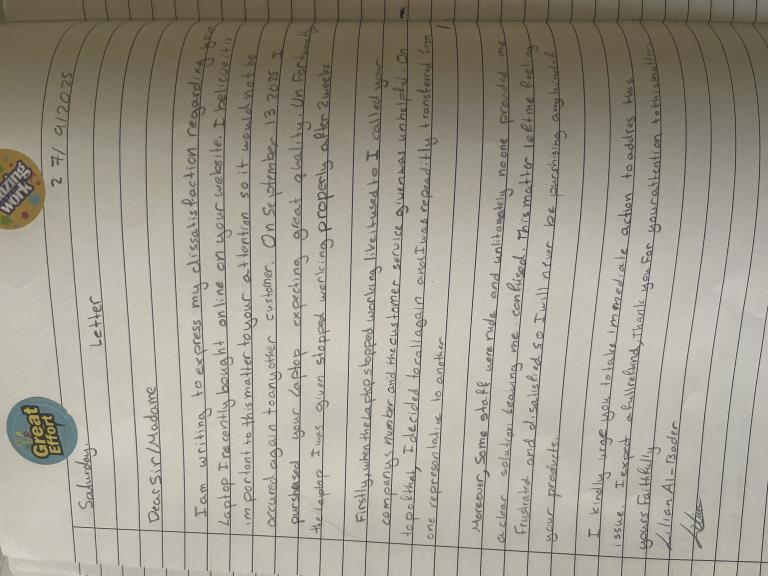 Amazing work
Great Effort
27/9/2025
Saturday,
Letter
Dear Sir/Madame
I am writing to express my dissatisfaction regarding your
Laptop I recently bought online on your website. I believe it is
important to this matter to your attention so it would not be
occured again to any other customer. On September 13 2025 I
purshased your laptop expecting great quality. Unfortunatly
the laptop I was given stopped working properly after 2 weeks.
Firstly, when the laptop stopped working like it used to I called your
companys number and the customer service given was unhelpful. On
top of that, I decided to call again and I was repeaditly transfered from
one represenlative to another
Moreover, some staff were rude and unlitamately no one provided me
a clear solution leaving me confused. This matter left me feeling
Frustrated and disatisfied so I will never be purshising any kind of
your products.
I kindly urge you to take immediate action to addres this
issue. I expect a full refund, Thank you For your attention to this matter
yours Faithfully
Lilia-Al-Bader